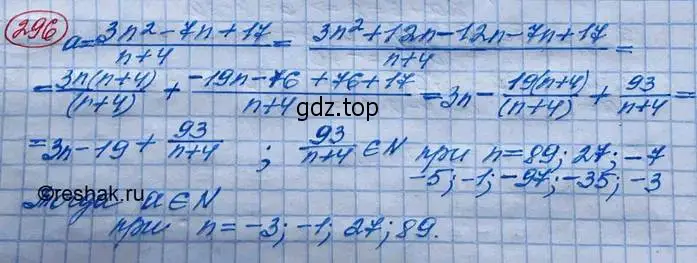 296
a = \frac{3n² - 7n + 17}{n+4} = \frac{3n² + 12n - 12n - 7n + 17}{n+4} =
= \frac{3n(n+4)}{(n+4)} + \frac{-19n - 76 + 76 + 17}{n+4} = 3n - \frac{19(n+4)}{(n+4)} + \frac{93}{n+4} =
gdz.top
= 3n - 19 + \frac{93}{n+4} ; \frac{93}{n+4} ∈ N при n = 89; 27; -7
-5; -1; -97; -35; -3
©reshak.ru
Тогда a ∈ N
при n = -3; -1; 27; 89.